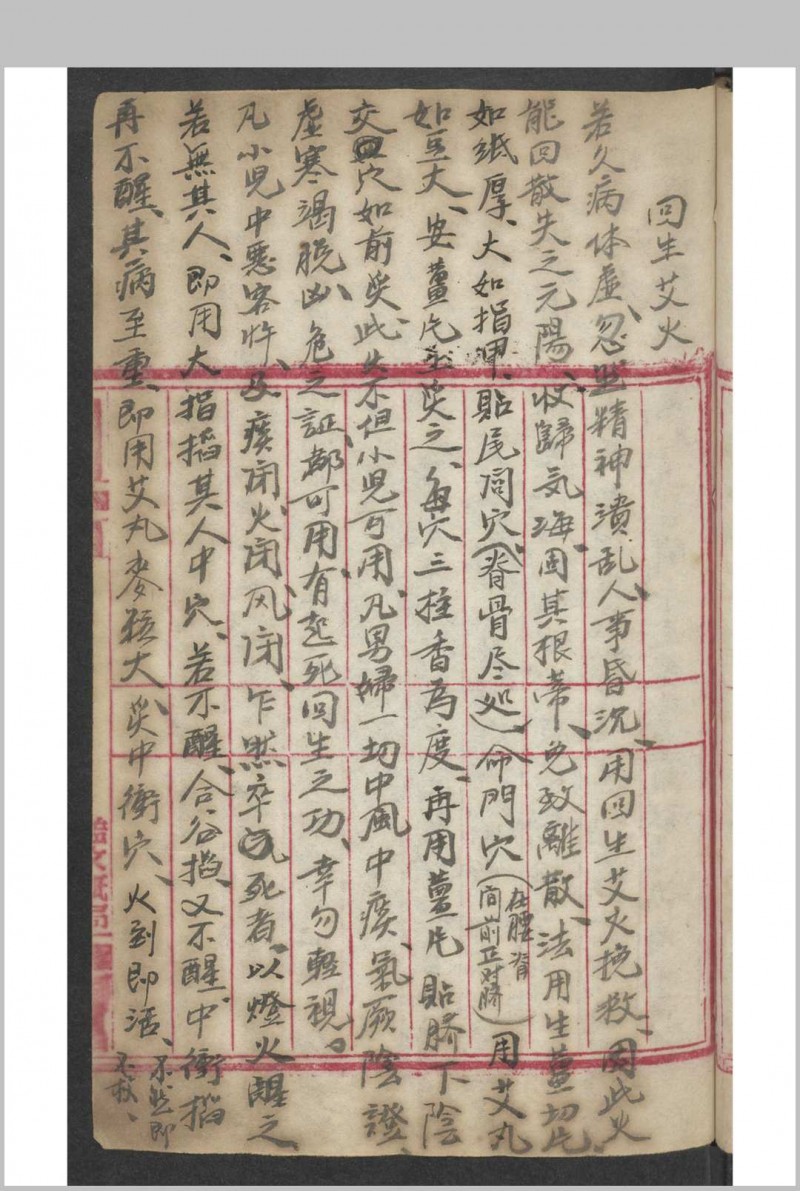 回生艾火
若久病体虛、忽然精神潰乱、人事昏沉、用回生艾火挽救、因此火
能回散失之元陽、收歸気海、固其根蒂、免致離散、法用生薑切片
如紙厚、大如指甲、貼尾閭穴（脊骨尽処）命門穴（在腰脊間前正对臍）用艾丸
如豆大、安薑片上炙之、每穴三炷香為度、再用薑片貼臍下陰
交穴如前炙、此火不但小児可用、凡男婦一切中風中痰、氣厥陰證、
虛寒竭脫、凶危之証、都可用、有起死回生之功、幸勿輕視。
凡小児中悪客忤、及痰闭火闭风闭、乍然卒死者、以燈火醒之、
若無其人、即用大指掐其人中穴、若不醒、合谷掐、又不醒、中衝掐
再不醒、其病至重、即用艾丸麥粒大、炙中衝穴、火到即活、不然即不救、